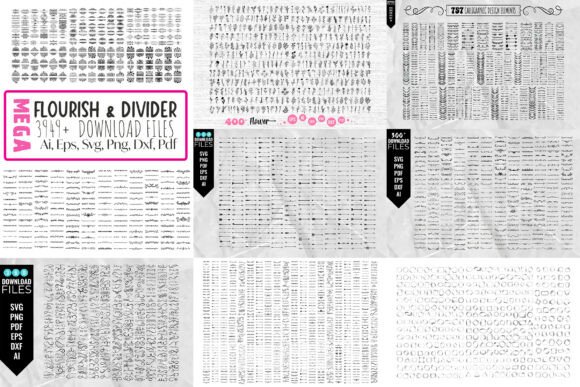 MEGA
FLOURISH & DIVIDER
3949+ DOWNLOAD FILES
Ai, Eps, Svg, Png, Dxf, Pdf
400+ flower
757 CALIGRAPHIC DESIGN ELEMENTS
DOWNLOAD
FILES
SVG
PNG
PDF
EPS
DXF
AI
300+
DOWNLOAD
FILES
SVG
PNG
PDF
EPS
DXF
AI
DOWNLOAD
FILES
SVG
PNG
PDF
EPS
DXF
AI